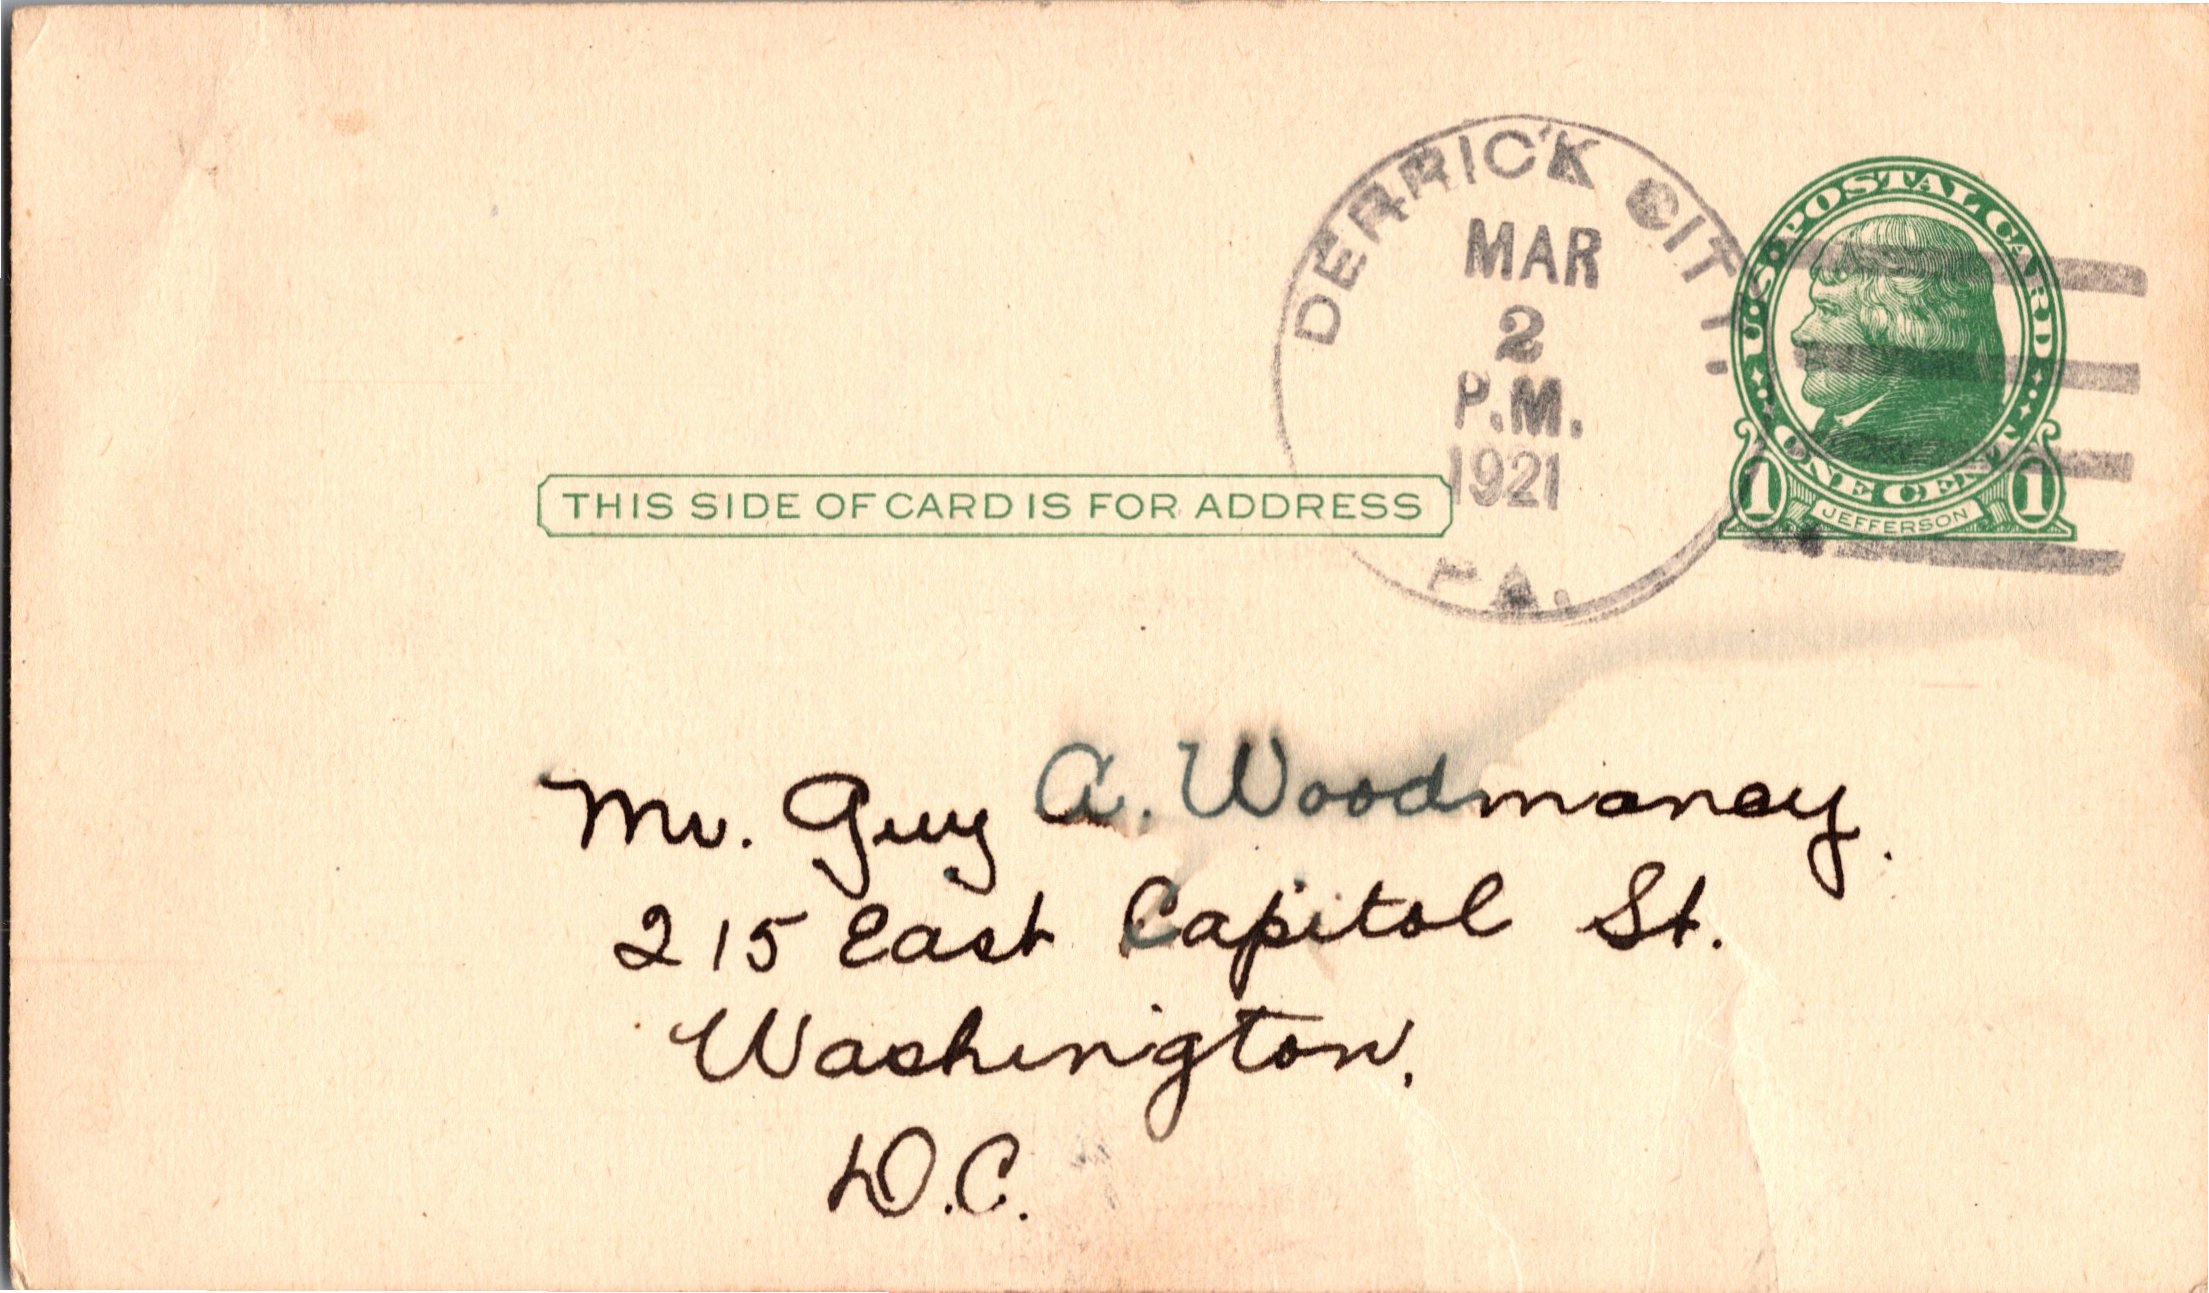 DERRICK CITY
MAR
2
P.M.
1921
PA.
U.S. POSTAL CARD
ONE CENT
1 JEFFERSON 1
THIS SIDE OF CARD IS FOR ADDRESS
Mr. Guy A. Woodmancy.
215 East Capitol St.
Washington,
D.C.